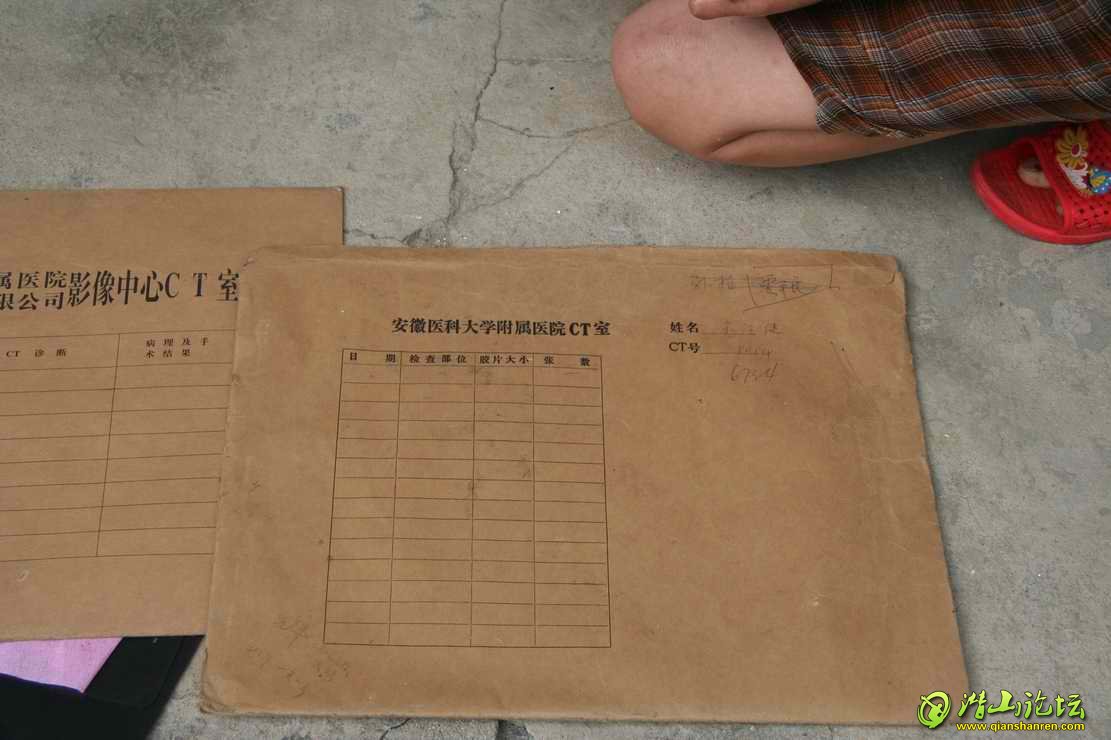 属医院影像中心CT室
限公司
CT 诊断
病理及手
术结果
安徽医科大学附属医院CT室
日 期 检查部位 胶片大小 张 数
姓名
CT号
潜山论坛
www.qianshanren.com